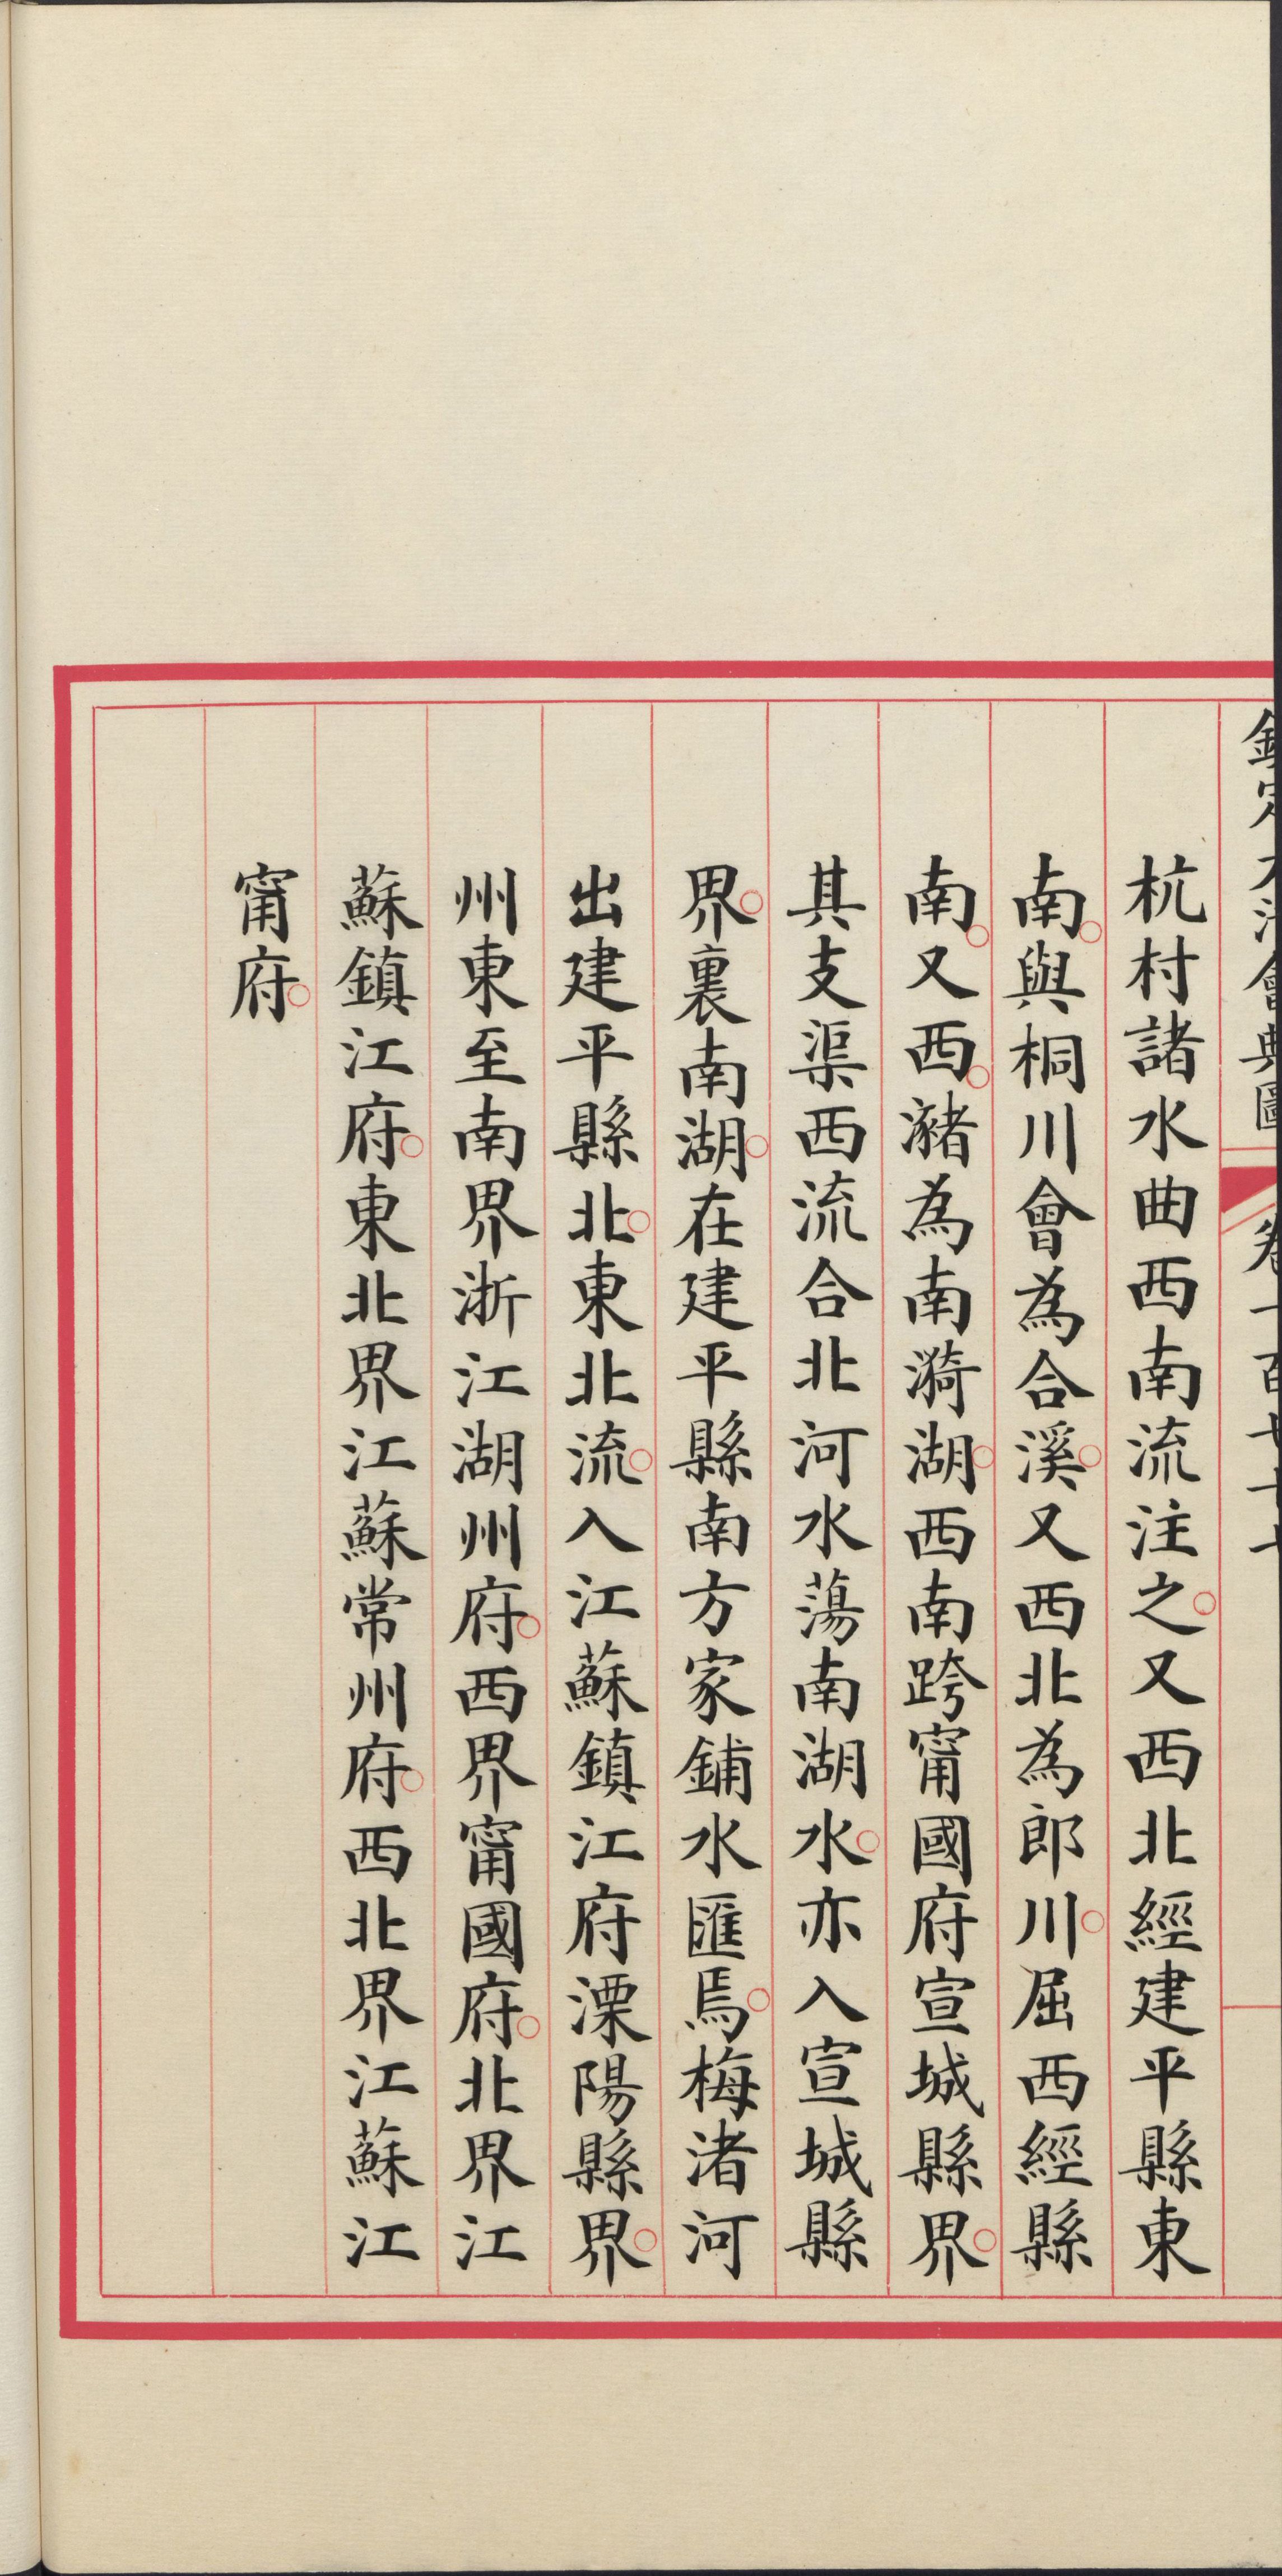 欽定大清會典圖 卷一百七十七
杭村諸水曲西南流注之。又西北經建平縣東
南。與桐川會為合溪。又西北為郎川。屈西經縣
南。又西。瀦為南漪湖。西南跨甯國府宣城縣界。
其支渠西流合北河水蕩南湖水。亦入宣城縣
界。裏南湖。在建平縣南方家鋪水匯焉。梅渚河
出建平縣北。東北流。入江蘇鎮江府溧陽縣界。
州東至南界浙江湖州府。西界甯國府。北界江
蘇鎮江府。東北界江蘇常州府。西北界江蘇江
甯府。